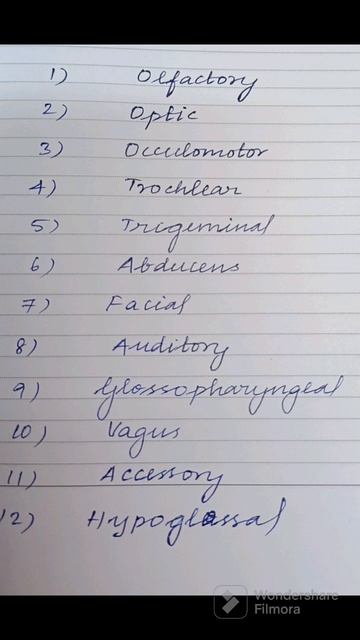 1) Olfactory
2) Optic
3) Occulomotor
4) Trochlear
5) Trigeminal
6) Abducens
7) Facial
8) Auditory
9) Glossopharyngeal
10) Vagus
11) Accessory
12) Hypoglossal
Wondershare
Filmora